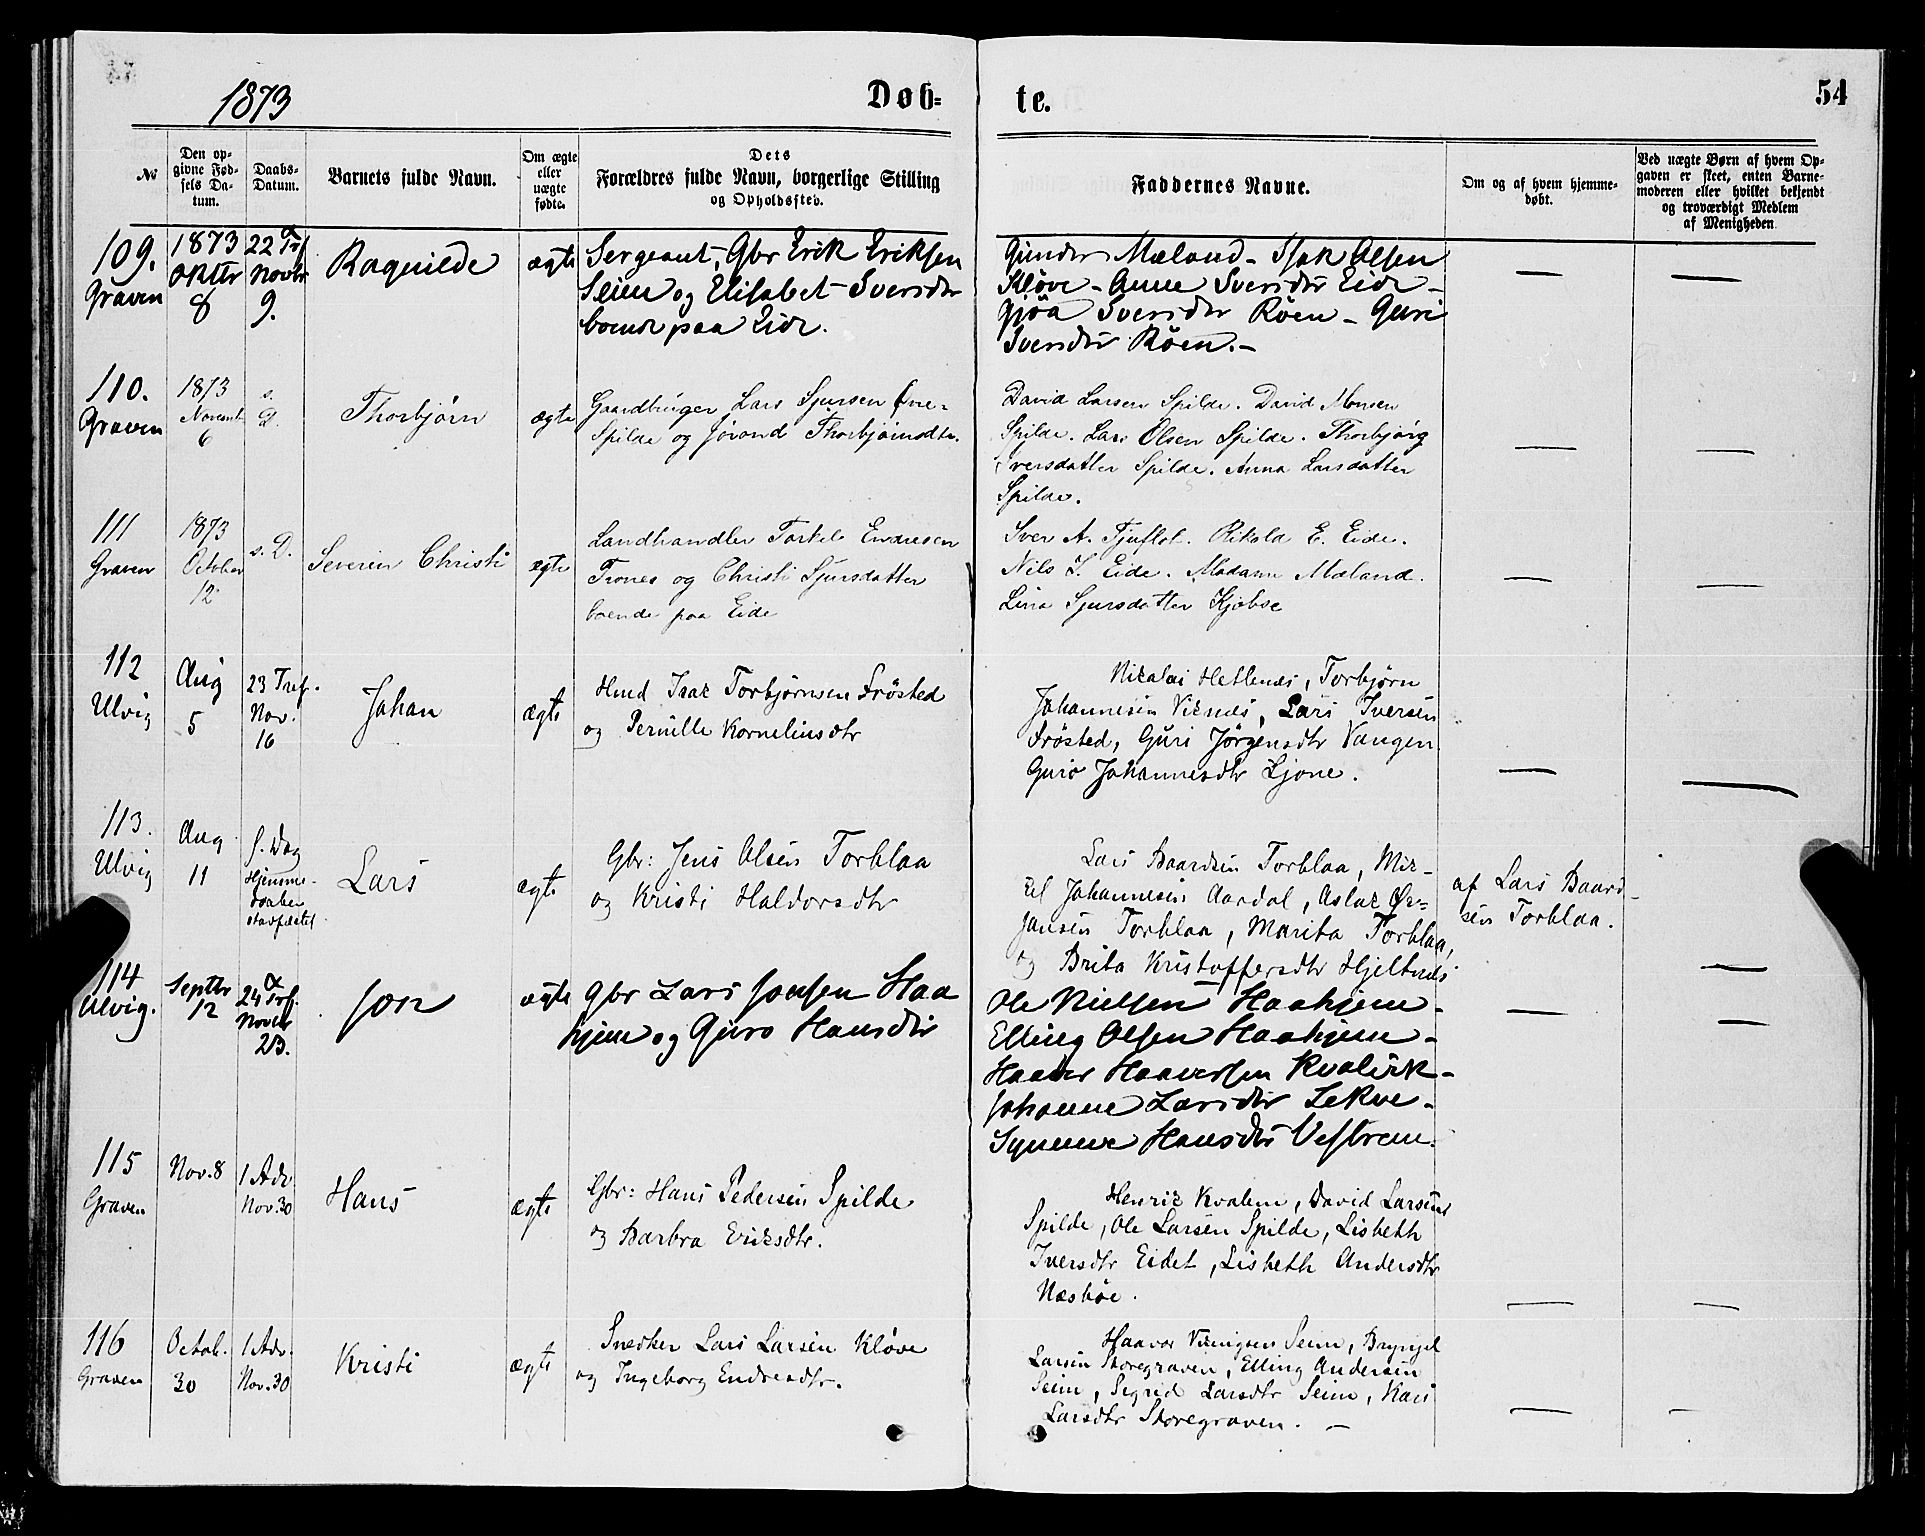 1873
Døb-
te.
54
№
Den op-
givne Fød-
sels Da-
tum.
Daabs-
Datum.
Barnets fulde Navn.
Om ægte
eller
uægte
fødte.
Dets
Forældres fulde Navn, borgerlige Stilling
og Opholdssted.
Faddernes Navne.
Om og af hvem hjemme-
døbt.
Ved uægte Børn af hvem Op-
gaven er skeet, enten Barne-
moderen eller hvilket bekjendt
og troværdigt Medlem
af Menigheden
109.
Graven
1873
Oktbr
8
22 Trf
Novbr
9.
Ragnilde
ægte
Sergeant, Gbr Erik Eriksen
Seim og Elisabet Iversdtr
boende paa Eide.
Gunder Mæland - Isak Olsen
Kløve - Anne Iversdtr Eide -
Gjøa Iversdtr Røen - Guri
Iversdtr Røen. -
110.
Graven
1873
Novemb
6
s.
D.
Thorbjørn
ægte
Gaardbruger Lars Sjursen Øvre-
Spilde og Jørond Thorbjørnsdtr.
David Larsen Spilde. David Monsen
Spilde. Lars Olsen Spilde. Thorbjørg
Iversdatter Spilde. Anna Larsdatter
Spilde.
111
Graven
1873
October
12
s. D.
Severin Christi
ægte
Landhandler Torkel Endresen
Trones og Christi Sjursdatter
boende paa Eide
Iver A. Tjuflot. Rikold E. Eide.
Nils J. Eide. Madam Mæland.
Lina Sjursdatter Kjøbse
112
Ulvig
Aug
5
23 Tref.
Nov.
16
Johan
ægte
Hmd Isac Torbjørnsen Frøsted
og Pernille Kornelinsdtr
Nicolai Hetlenes, Torbjørn
Johannesen Vicnes, Lars Iversen
Frøsted, Guri Jørgensdtr Vangen
Guro Johannesdtr Ljone.
113.
Ulvig
Aug
11
s. Dag
Hjemme-
daaben
stadfæstet
Lars
ægte
Gbr: Jens Olsen Torblaa
og Kristi Haldorsdtr
Lars Baardsen Torblaa, Mic-
kel Johannesen Aardal, Aslac Ør-
jansen Torblaa, Marita Torblaa,
og Brita Kristoffersdtr Hjeltnes
af Lars Baard-
sen Torblaa.
114
Ulvig.
Septbr
12
24 Trf.
Novbr
23.
Jon
ægte
Gbr Lars Jonsen Haa
hjem og Guro Hansdtr
Ole Nielsen Haahjem -
Elling Olsen Haahjem -
Haaver Haaversen Kvaleik -
Johanne Larsdtr Lekve -
Synneve Hansdtr Vestrem.
115
Graven
Nov. 8
1 Adv
Nov. 30
Hans
ægte
Gbr: Hans Pedersen Spilde
og Barbra Eriksdtr.
Henric Kvalem, David Larsens
Spilde, Ole Larsen Spilde, Lisbeth
Iversdtr Eidet, Lisbeth Andersdtr
Næsbøe.
116
Graven
Octob.
30
1 Adv.
Nov. 30
Kristi
ægte
Snedker Lars Larsen Kløve
og Ingeborg Endresdtr.
Haavar Vikingsen Seim, Brynjel
Larsen Storegraven, Elling Andersen
Seim, Segrid Larsdtr Seim, Kari
Larsdtr Storegraven. -